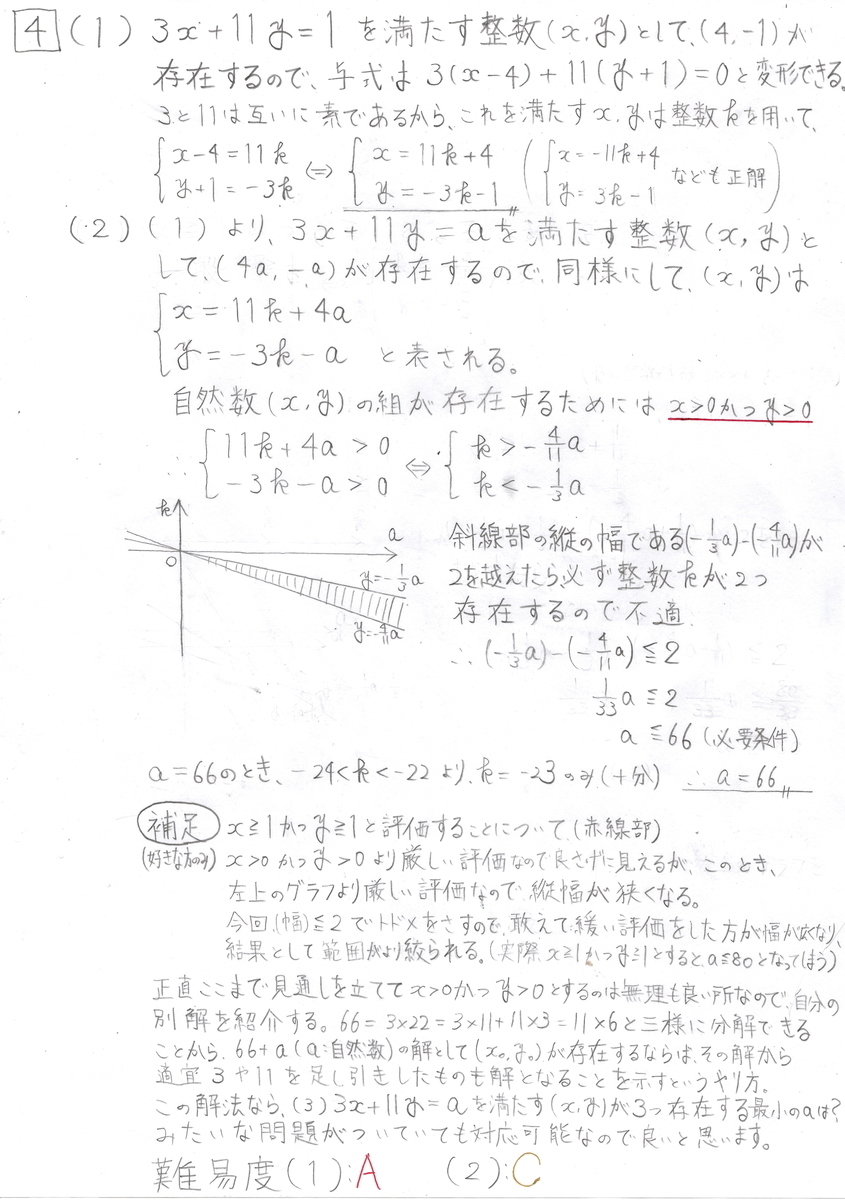 4 (1) 3x+11y=1 を満たす整数(x,y)として、(4,-1)が
存在するので、与式は 3(x-4)+11(y+1)=0と変形できる。
3と11は互いに素であるから、これを満たすx,yは整数kを用いて、
{x-4=11k y+1=-3k ⇔ {x=11k+4 y=-3k-1 ({x=-11k+4 y=3k-1 なども正解)
(2) (1)より、3x+11y=aを満たす整数(x,y)と
して、(4a,-a)が存在するので、同様にして、(x,y)は
{x=11k+4a
y=-3k-a と表される。
自然数(x,y)の組が存在するためには x>0かつy>0
∴ {11k+4a>0 -3k-a>0 ⇔ {k>-4/11a k<-1/3a
k
a
O
y=-1/3a
y=-4/11a
斜線部の縦の幅である(-1/3a)-(-4/11a)が
2を越えたら必ず整数kが2つ
存在するので不適
∴ (-1/3a)-(-4/11a)≦2
1/33a≦2
a≦66 (必要条件)
a=66のとき、-24<k<-22より、k=-23のみ(十分) ∴a=66
補足 x≧1かつy≧1と評価することについて(赤線部)
(好きな方のみ) x>0かつy>0より厳しい評価なので良さげに見えるが、このとき、
左上のグラフより厳しい評価なので、縦幅が狭くなる。
今回、(幅)≦2でトドメをさすので、敢えて緩い評価をした方が幅が広くなり、
結果として範囲がより絞られる。(実際x≧1かつy≧1とするとa≦80となってしまう)
正直ここまで見通しを立ててx>0かつy>0とするのは無理も良い所なので、自分の
別解を紹介する。66=3×22=3×11+11×3=11×6と三様に分解できる
ことから、66+a(a:自然数)の解として(x₀,y₀)が存在するならば、その解から
適宜3や11を足し引きしたものも解となることを示すというやり方。
この解法なら、(3)3x+11y=aを満たす(x,y)が3つ存在する最小のaは?
みたいな問題がついていても対応可能なので良いと思います。
難易度(1):A (2):C